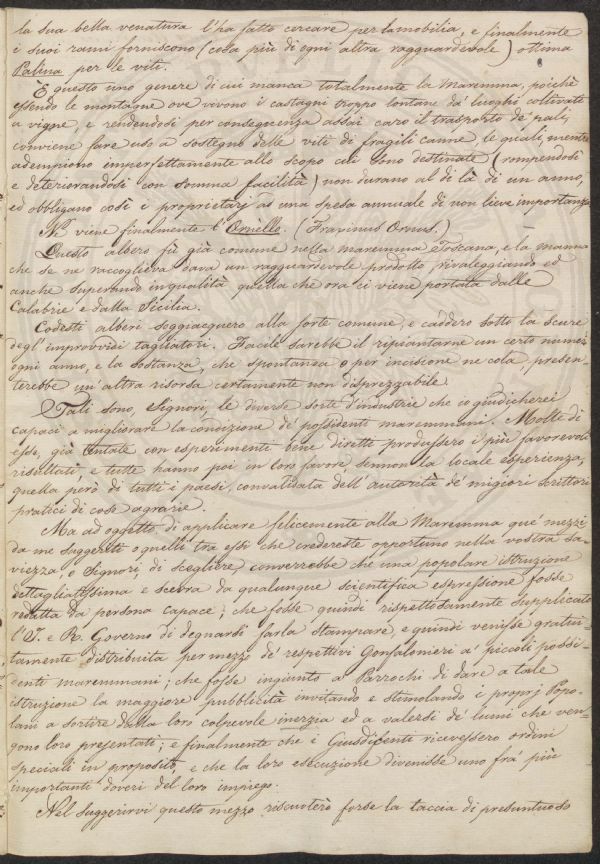 la sua bella venatura l'ha fatto cercare per la mobilia, e finalmente
i suoi rami forniscono (cosa più di ogni altra ragguardevole) ottima
Palina per le viti.
È questo uno genere di cui manca totalmente la Maremma, poichè
essendo le montagne ove vivono i castagni troppo lontane da' luoghi coltivati
a vigne, e rendendosi per conseguenza assai caro il trasporto de' pali,
conviene fare uso a sostegno delle viti di fragili canne, le quali, mentre
adempiono imperfettamente allo scopo cui sono destinate (rompendosi
e deteriorandosi con somma facilità) non durano al di là di un anno,
ed obbligano così i proprietarj as una spesa annuale di non lieve importanza
Ne viene finalmente l'Orniello. (Fraxinus Ornus.)
Questo albero fù già comune nella maremma Toscana, e la manna
che se ne raccoglieva dava un ragguardevole prodotto, rivaleggiando ed
anche superando in qualità quella che ora ci viene portata dalle
Calabrie e dalla Sicilia.
Codesti alberi soggiacquero alla sorte comune, e caddero sotto la Scure
degl'improvvidi tagliatori. Facile sarebbe il ripiantarne un certo numero
ogni anno, e la sostanza, che spontanea o per incisione ne cola, presen-
terebbe un'altra risorsa certamente non disprezzabile.
Tali sono, Signori, le diverse sorte d'industrie che io giudicherei
capaci a migliorare la condizione de' possidenti maremmani. Molte di
esse, già tentate con esperimenti bene diretti produssero i più favorevoli
risultati, e tutte hanno poi in loro favore, sennon la locale esperienza,
quella però di tutti i paesi, convalidata dell'autorità de' migiori scrittori
pratici di cose agrarie.
Ma ad oggetto di applicare felicemente alla Maremma que' mezzi
da me suggeriti o quelli tra essi che credereste opportuno nella vostra sa-
viezza, o Signori, di scegliere converrebbe che una popolare istruzione
dettagliatissima e scevra da qualunque scientifica espressione fosse
redatta da persona capace; che fosse quindi rispettosamente supplicato
l'I. e R. Governo di degnarsi farla stampare, e quindi venisse gratui-
tamente distribuita per mezzo de' respettivi Gonfalonieri a' piccoli possi-
denti maremmani; che fosse ingiunto a' Parrochi di dare a tale
istruzione la maggiore pubblicità invitando e stimolando i proprj Popo-
lani a sortire dalla loro colpevole inerzia ed a valersi de' lumi che ven-
gono loro presentati; e finalmente che i Giusdicenti ricevessero ordini
speciali in proposito, e che la loro esecuzione divenisse uno frà i più
importanti doveri del loro impiego.
Nel suggerirvi questo mezzo riscuoterò forse la taccia di presuntuoso